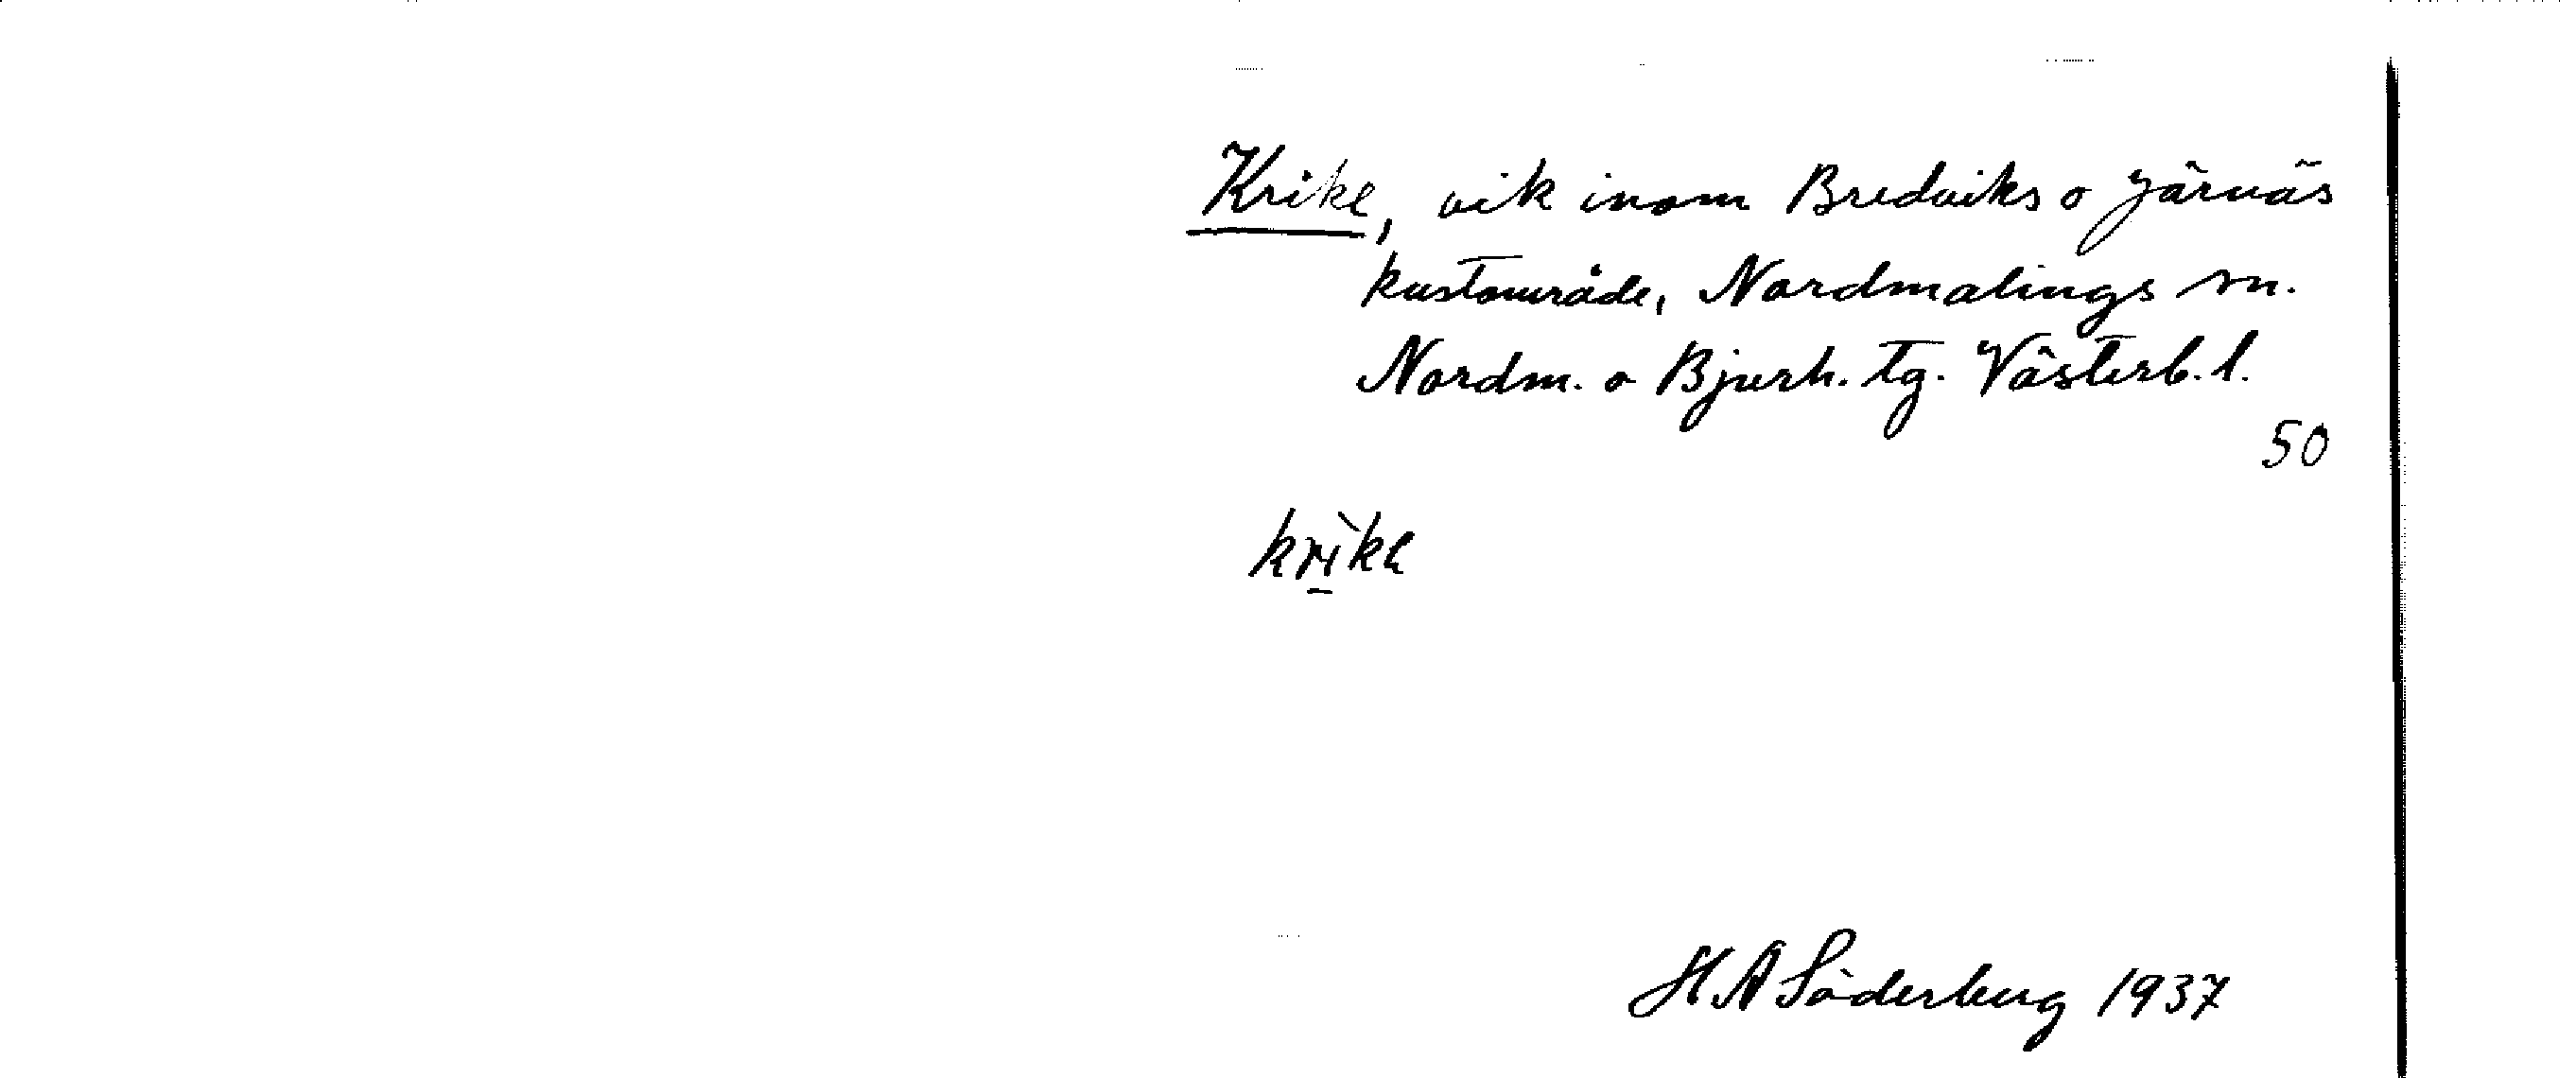 Krike, vik inom Bredviks o Järnäs
kustområde, Nordmalings sn.
Nordm. o Bjurh. tg. Västerb. l.
50
krı̱̀ke
H A Söderberg 1937